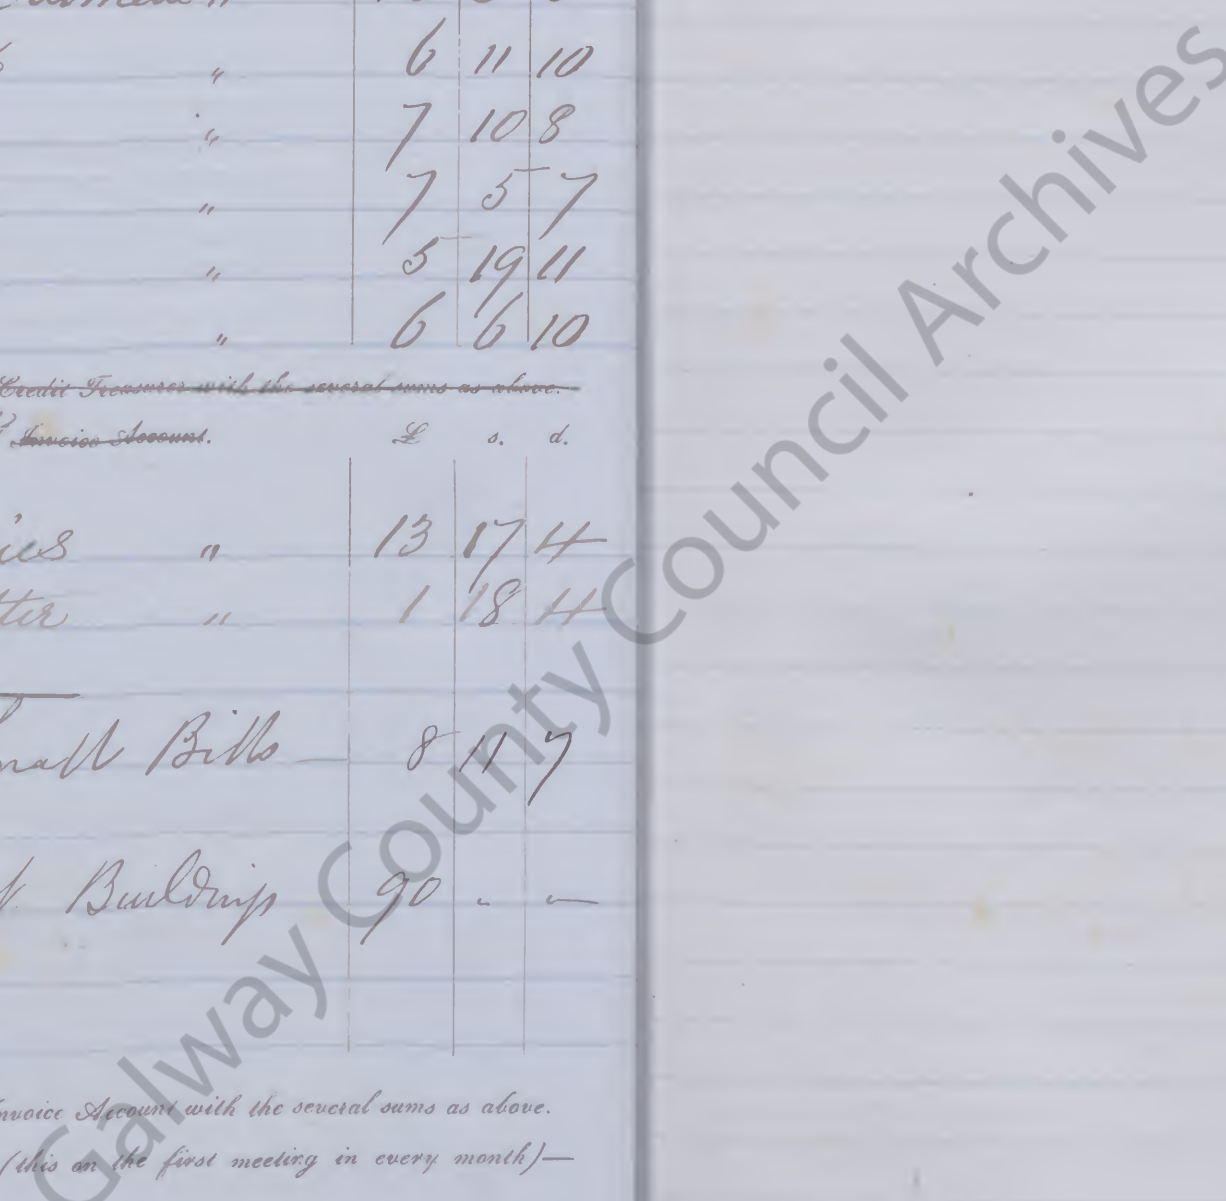 " 6 11 10
" 7 10 8
" 7 5 7
" 5 19 11
" 6 6 10
Credit Treasurer with the several sums as above.
Invoice Account. £ s. d.
ies " 13 17 4
tter " 1 18 4
mall Bills — 8 11 7
Buildings 90 " —
nvoice Account with the several sums as above.
(this on the first meeting in every month)—
Galway County Council Archives